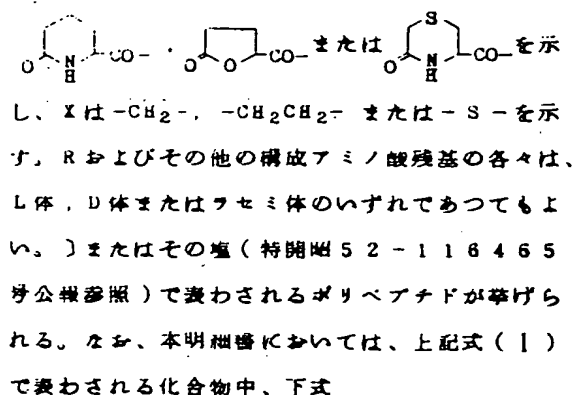 O N H CO- , O O CO- または S O N H CO- を示
し、Xは-CH2-, -CH2CH2- または-S-を示
す。Rおよびその他の構成アミノ酸残基の各々は、
L体,D体またはラセミ体のいずれであつてもよ
い。〕またはその塩(特開昭52-116465
号公報参照)で表わされるポリペプチドが挙げら
れる。なお、本明細書においては、上記式(I)
で表わされる化合物中、下式